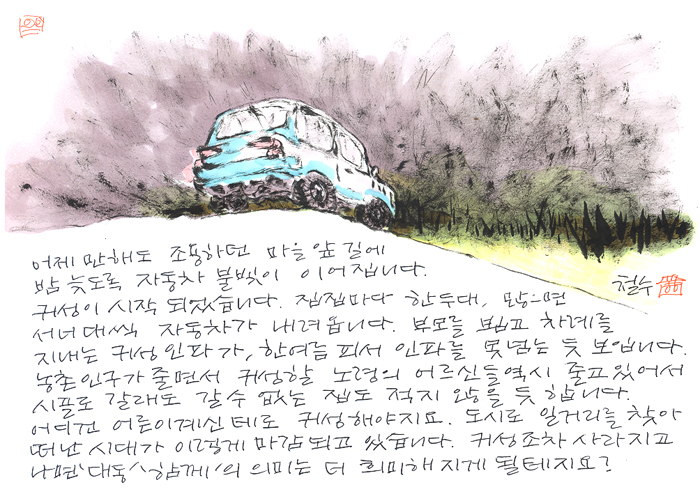 어제 만해도 조용하던 마을 앞 길에
밤 늦도록 자동차 불빛이 이어집니다.
귀성이 시작 되었습니다. 집집마다 한 두대, 많으면
철수
서너대씩 자동차가 내려옵니다. 부모를 뵙고 차례를
지내는 귀성 인파가, 한여름 피서 인파를 못넘는 듯 보입니다.
농촌인구가 줄면서 귀성할 노령의 어르신들 역시 줄고 있어서
시골로 갈래도 갈 수 없는 집도 적지 않을 듯 합니다.
어여건 어른이계신 데로 귀성해야지요. 도시로 일거리를 찾아
떠난 시대가 이렇게 마감되고 있습니다. 귀성조차 사라지고
나면 '대동' '함께'의 의미는 더 희미해 지게 될테지요?